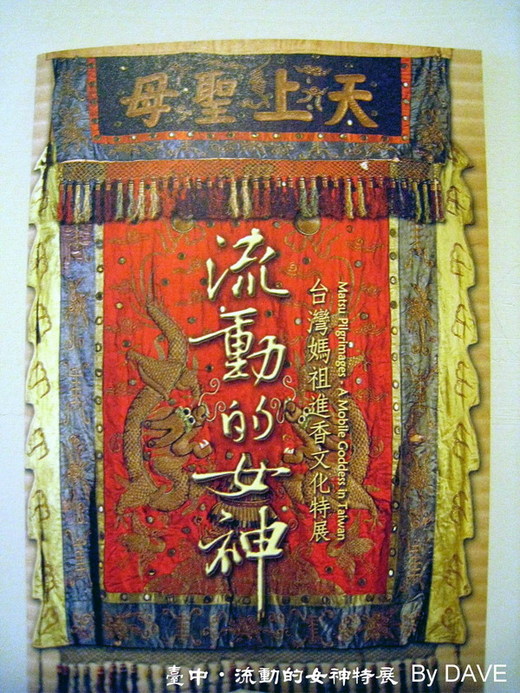 天上聖母
流動的女神
台灣媽祖進香文化特展
Matsu Pilgrimages，A Mobile Goddess in Taiwan
臺中・流動的女神特展 By DAVE